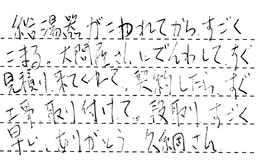 給湯器がこわれてから、すごく
こまる。大問屋さんにでんわして、すぐ
見積り来てくれて 契約したら、すぐ
土受取り付けて。段取り、すごく
早し、ありがとう 久綱さん